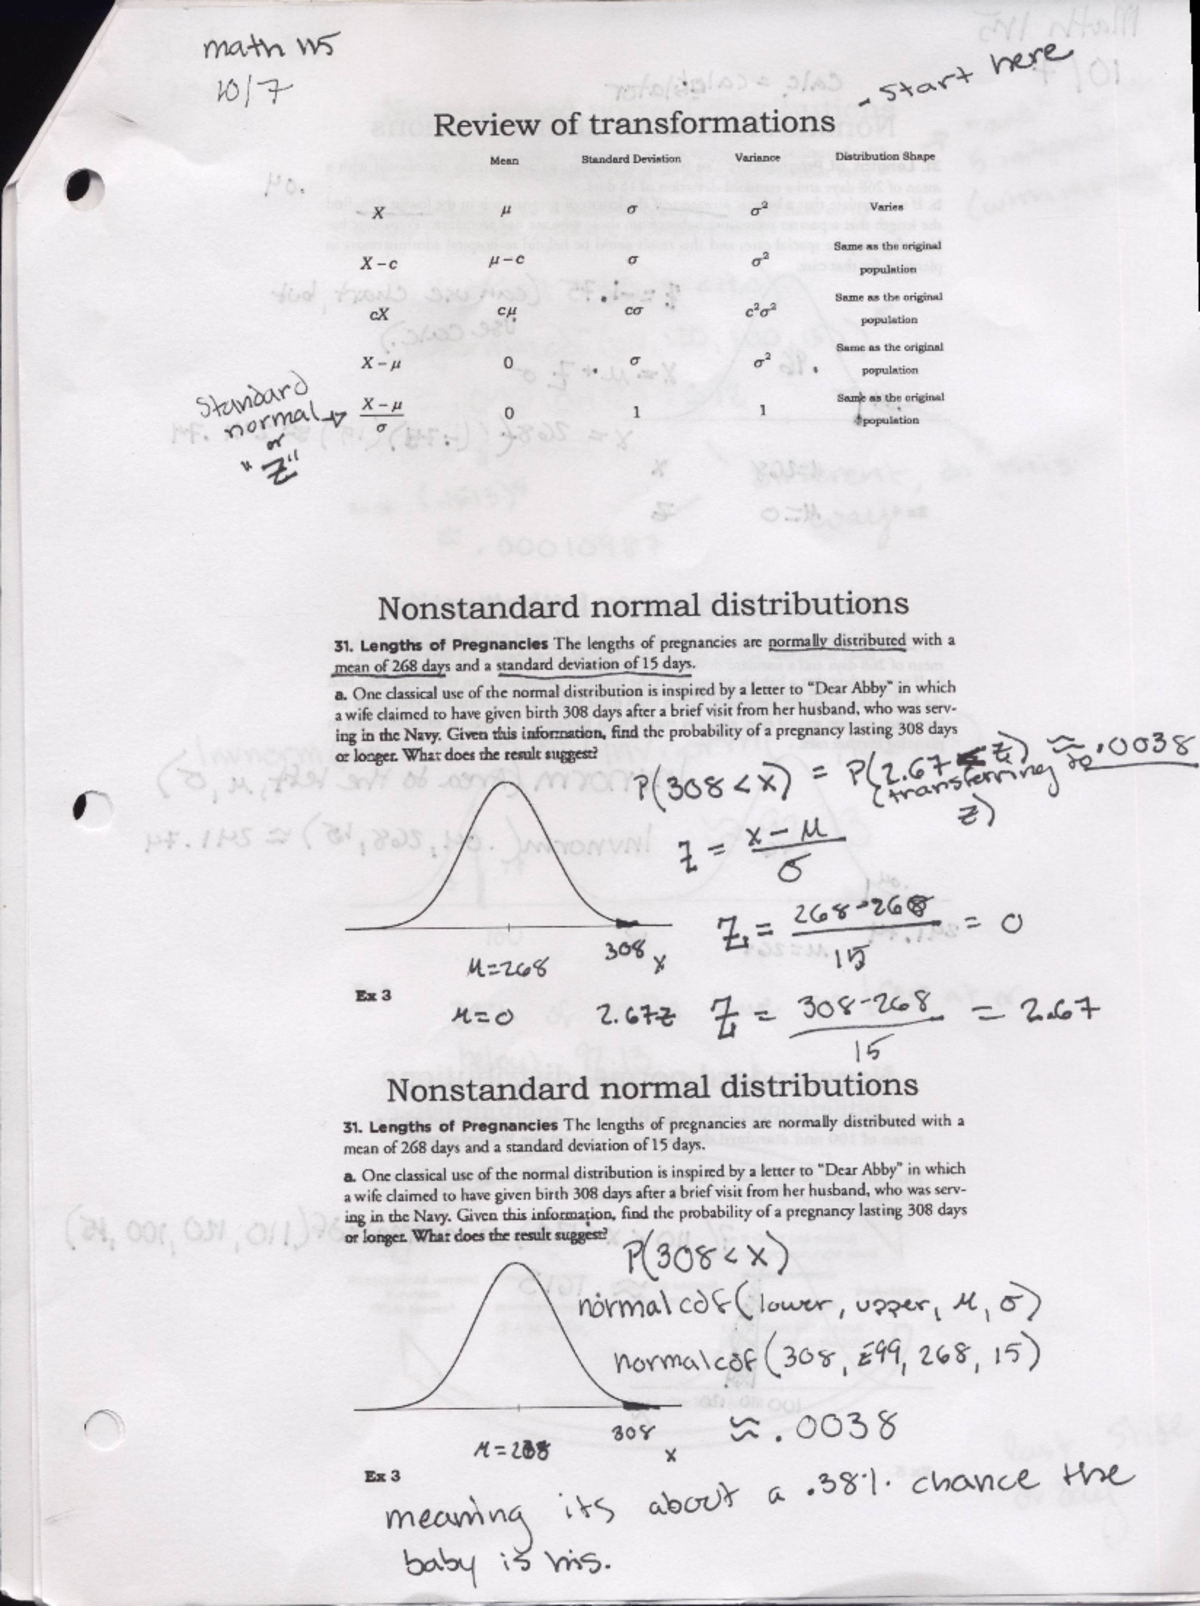 math 115
10/7
- start here
Review of transformations
Mean Standard Deviation Variance Distribution Shape
X μ σ σ² Varies
X – c μ – c σ σ² Same as the original
population
cX cμ cσ c²σ² Same as the original
population
X – μ 0 σ σ² Same as the original
population
Standard
normal →
or
"Z"
X – μ
σ
0 1 1 Same as the original
population
Nonstandard normal distributions
31. Lengths of Pregnancies The lengths of pregnancies are normally distributed with a
mean of 268 days and a standard deviation of 15 days.
a. One classical use of the normal distribution is inspired by a letter to "Dear Abby" in which
a wife claimed to have given birth 308 days after a brief visit from her husband, who was serv-
ing in the Navy. Given this information, find the probability of a pregnancy lasting 308 days
or longer. What does the result suggest?
P(308 < x) = P(2.67 < z) ≈ .0038
(transferring to
z)
z = x – μ
σ
Z = 268-268 = 0
15
308 x
μ=268
Ex 3
μ=0 2.67 z Z = 308-268 = 2.67
15
Nonstandard normal distributions
31. Lengths of Pregnancies The lengths of pregnancies are normally distributed with a
mean of 268 days and a standard deviation of 15 days.
a. One classical use of the normal distribution is inspired by a letter to "Dear Abby" in which
a wife claimed to have given birth 308 days after a brief visit from her husband, who was serv-
ing in the Navy. Given this information, find the probability of a pregnancy lasting 308 days
or longer. What does the result suggest?
P(308 < x)
normalcdf(lower, upper, μ, σ)
normalcdf(308, E99, 268, 15)
≈ .0038
308 x
μ=268
Ex 3
meaning its about a .38% chance the
baby is his.